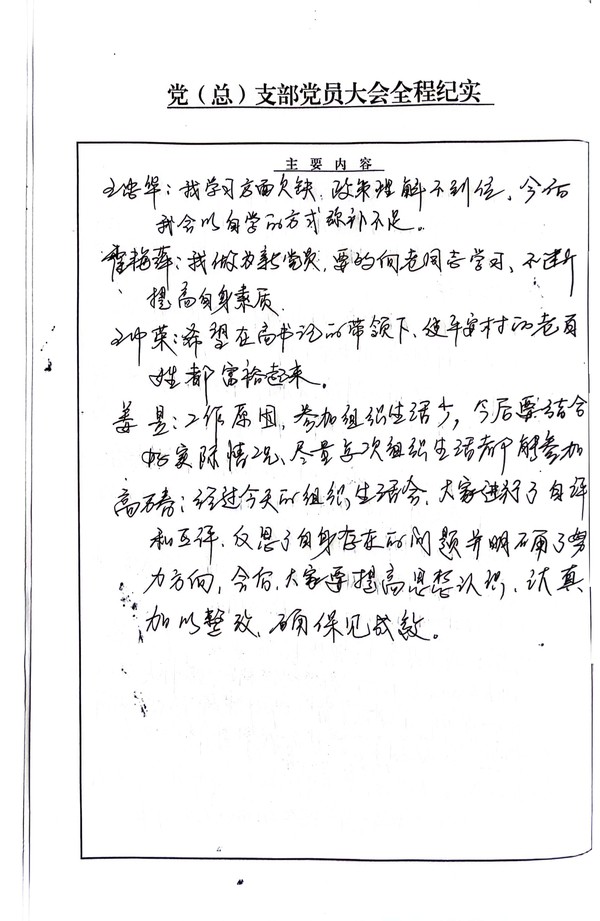 党（总）支部党员大会全程纪实
主要内容
华：我学习方面欠缺，政策理解不到位，今后
我会以自学的方式弥补不足。
梅萍：我做为新党员，要的向老同志学习，不断
提高自身素质。
王中英：希望在高书记的带领下，使平安村的老百
姓都富裕起来。
姜昱：工作原因，参加组织生活少，今后要结合
好实际情况、尽量每次组织生活都能参加
高：经过今天的组织生活会，大家进行了自评
和互评，反思了自身存在的问题并明确了努
力方向，今后，大家要提高思想认识，认真
加以整改，确保见成效。